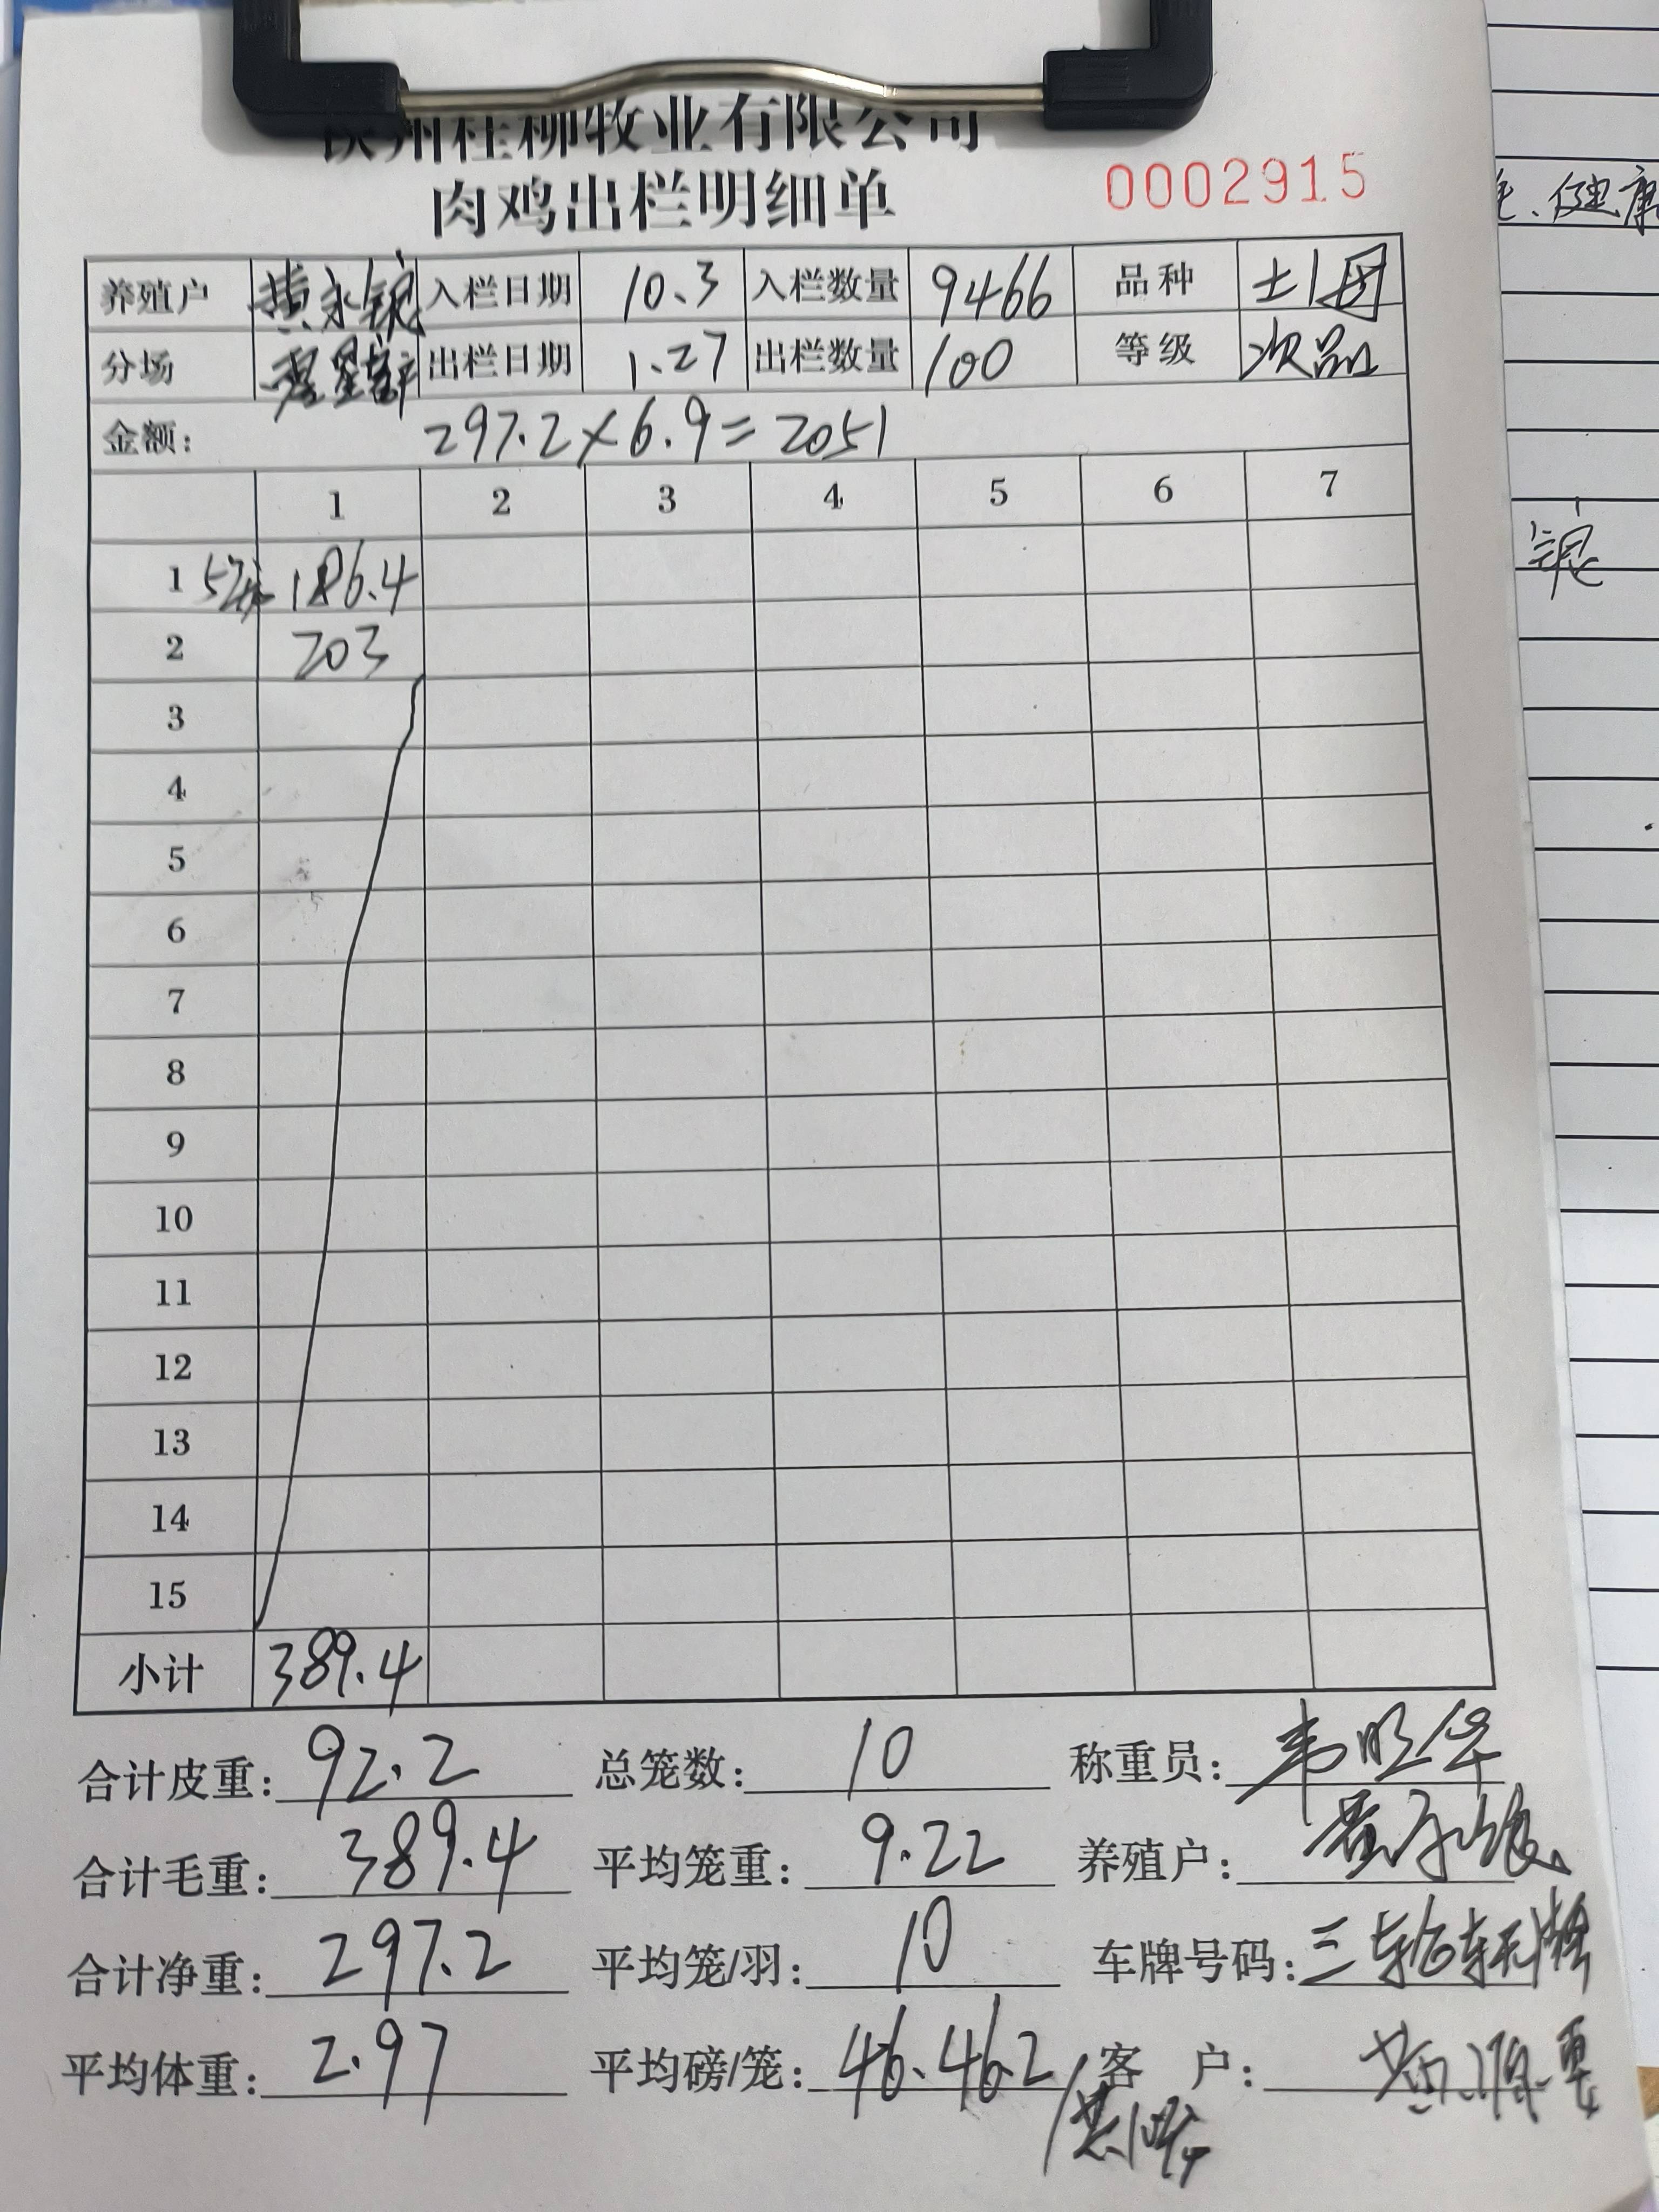 州桂柳牧业有限公司
肉鸡出栏明细单
0002915
养殖户 黄永银 入栏日期 10.3 入栏数量 9466 品种 土1
分场 出栏日期 1.27 出栏数量 100 等级 次品
金额: 297.2×6.9=2051
1 2 3 4 5 6 7
1 5 186.4
2 203
3
4
5
6
7
8
9
10
11
12
13
14
15
小计 389.4
合计皮重: 92.2 总笼数: 10 称重员: 韦
合计毛重: 389.4 平均笼重: 9.22 养殖户: 黄永银
合计净重: 297.2 平均笼/羽: 10 车牌号码: 三轮车无牌
平均体重: 2.97 平均磅/笼: 46.46.2 客 户:
健康
银